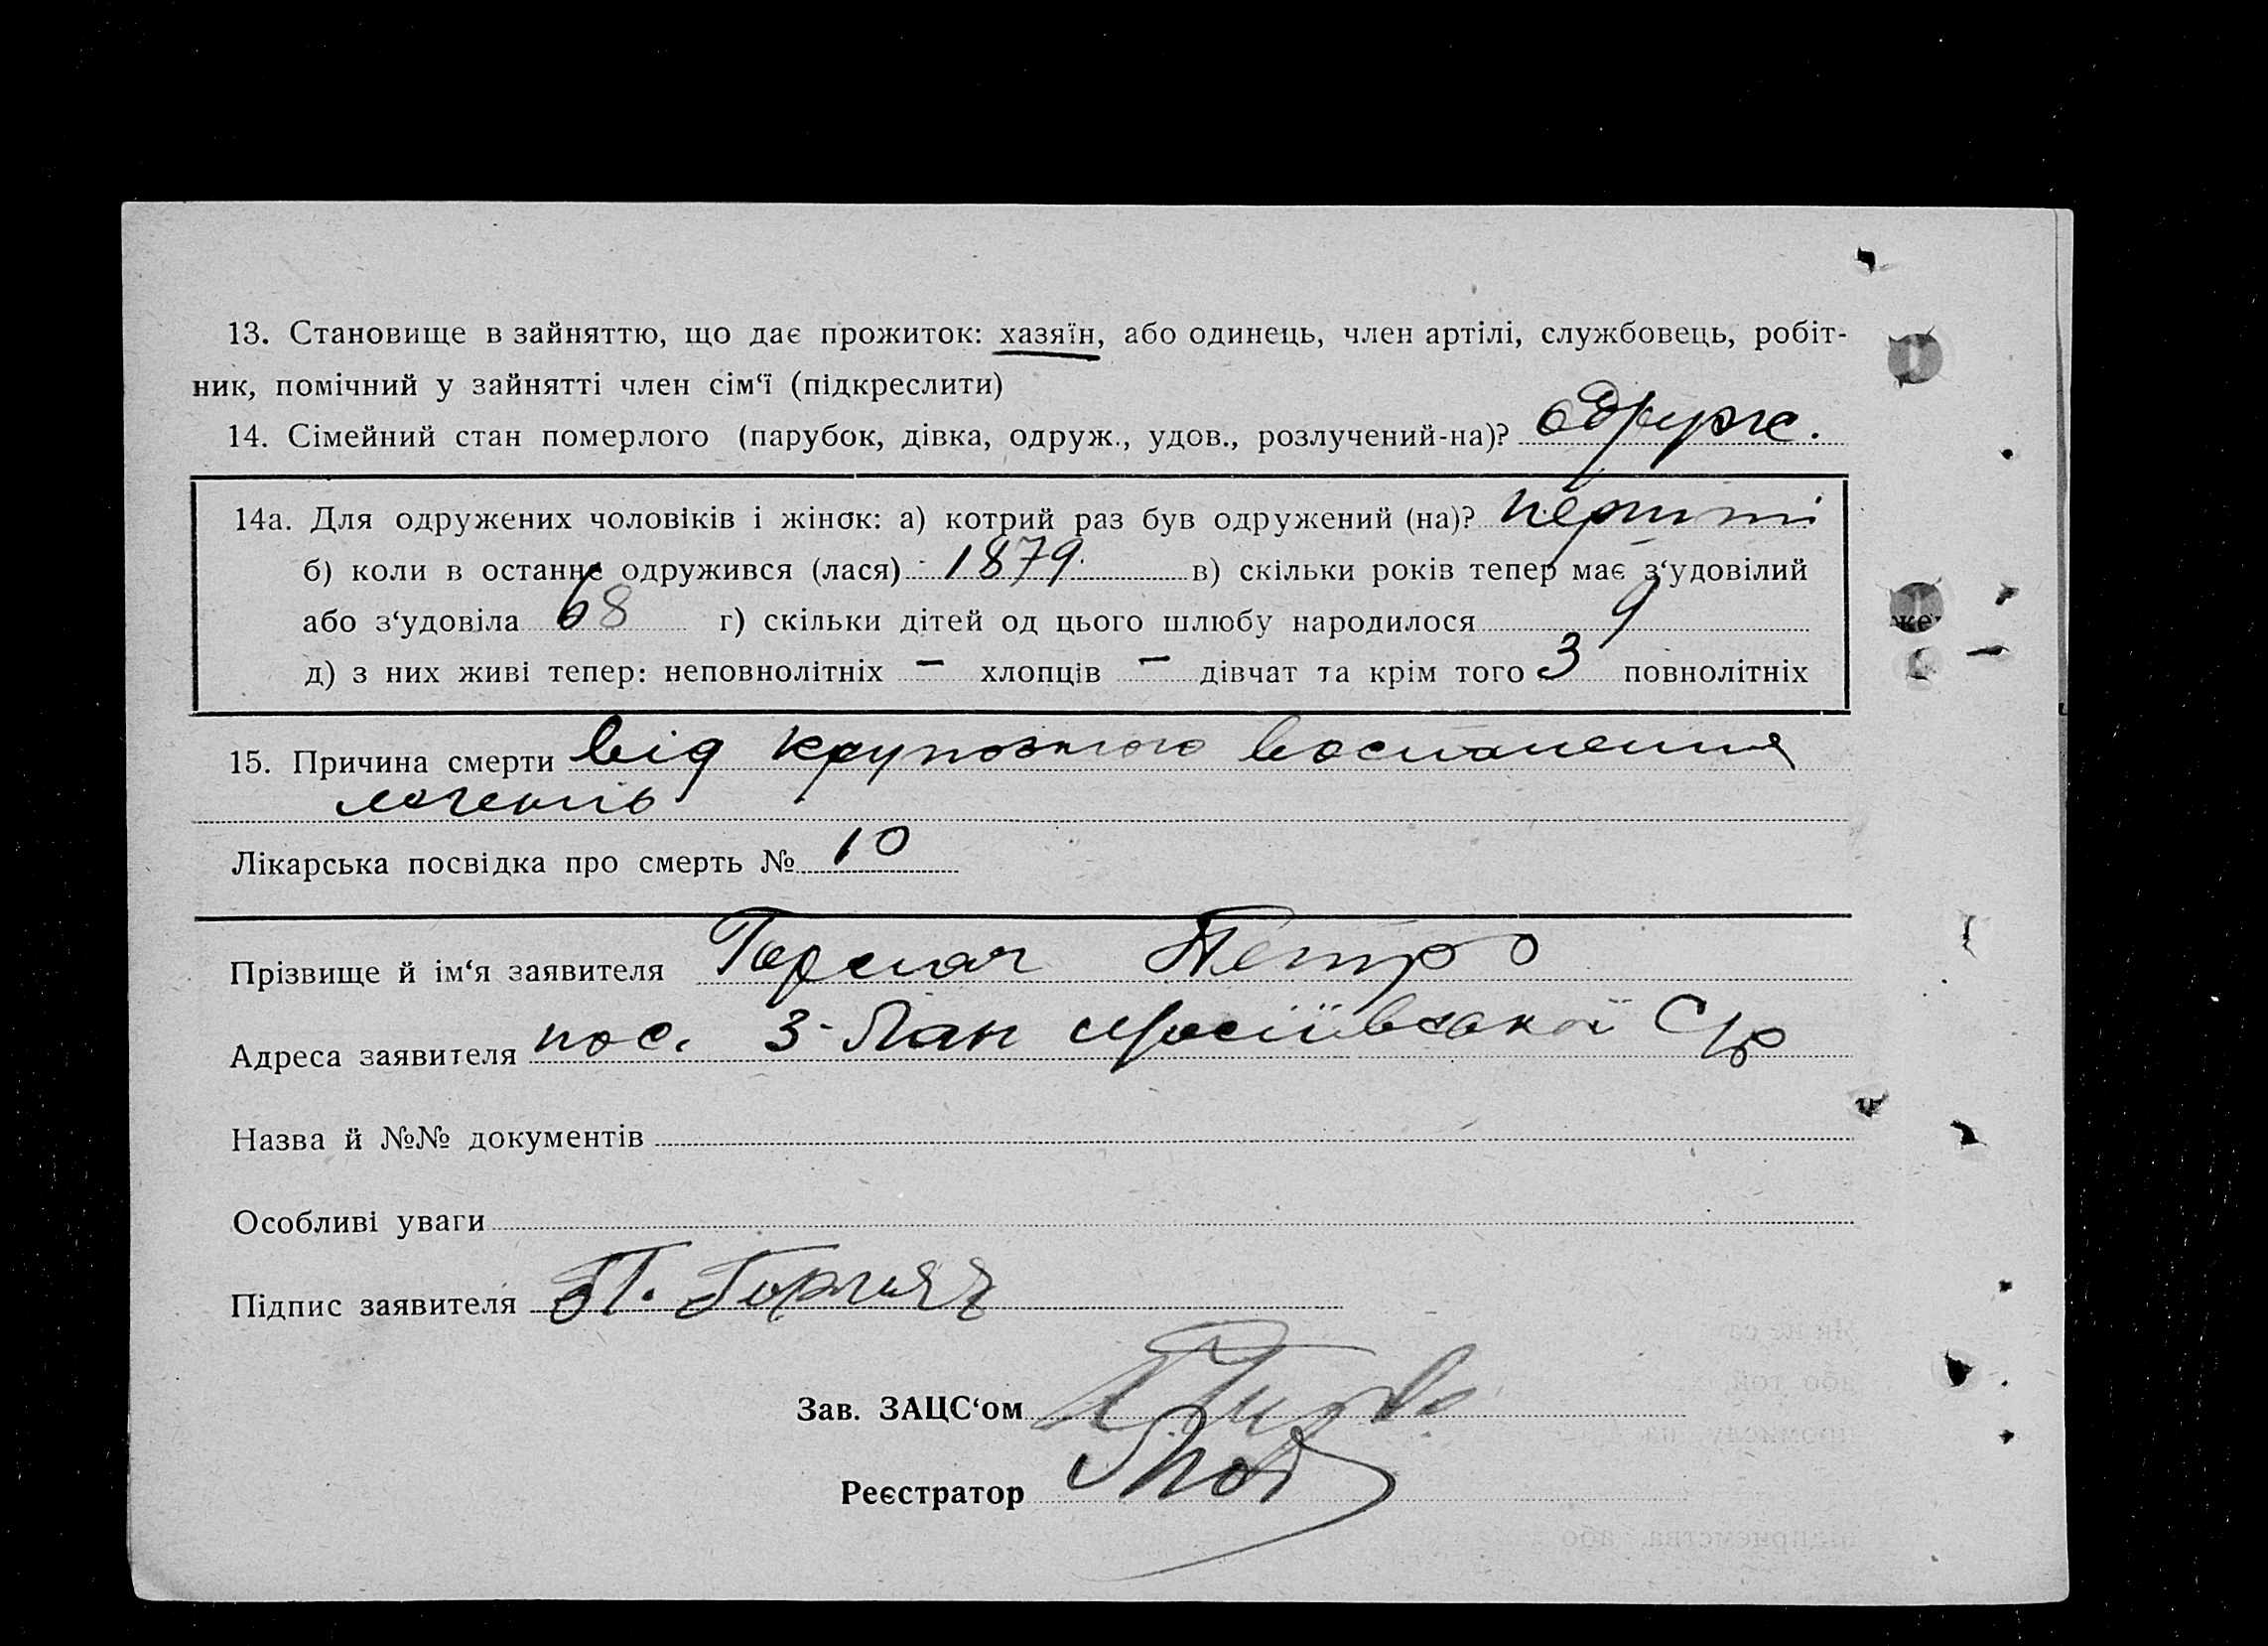 13. Становище в зайняттю, що дає прожиток: хазяїн, або одинець, член артілі, службовець, робіт-
ник, помічний у зайнятті член сім‘ї (підкреслити)
14. Сімейний стан померлого (парубок, дівка, одруж., удов., розлучений-на)? одруже.
14а. Для одружених чоловіків і жінок: а) котрий раз був одружений (на)?
б) коли в останнє одружився (лася) 1879 в) скільки років тепер має з‘удовілий
або з‘удовіла 68 г) скільки дітей од цього шлюбу народилося 9
д) з них живі тепер: неповнолітніх — хлопців — дівчат та крім того 3 повнолітніх
15. Причина смерти від крупозного воспаленния
легенів
Лікарська посвідка про смерть № 10
Прізвище й ім‘я заявителя Петро
Адреса заявителя пос. 3-Лан
Назва й №№ документів
Особливі уваги
Підпис заявителя П.
Зав. ЗАЦС‘ом
Реєстратор